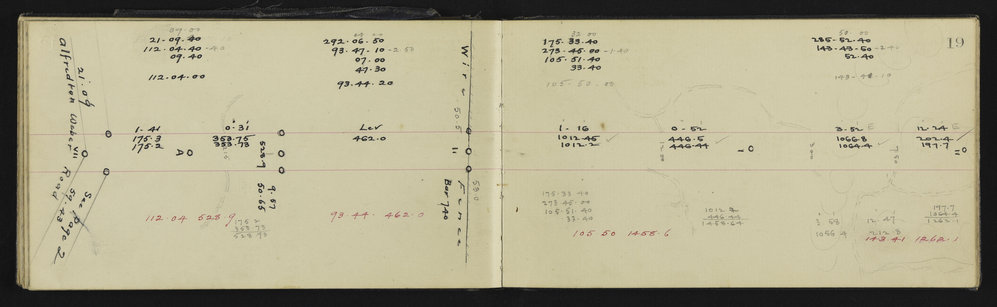 19
21.09.40
112.04.40
09.40
112.04.00
292.06.50
93.47.10-2.50
07.00
47.30
93.44.20
175.33.40
273.45.00-1.40
105.51.40
33.40
105-50-00
50.00
285.52.40
143-43-50-2.40
52.40
Alfredton Weber Road
See Page 2
Wire Fence
Bar 740
50.5
1-41
175.3
175.2
0.31
353.75
353.73
A
528.9
9.57
50.65
Lev
462.0
1-16
1012.45
1012.2
0-52
446.5
446.44
3-52 E
1066.8
1064.4
12.24 E
202.4
197.7
112.04 528.9
175.2
353.73
528.93
93.44. 462.0
175.33.40
273.45.00
105.51.40
33.40
1012.2
446.44
1458.64
105 50 1458.6
12.47
212.8
197.7
1064.4
1262.1
143.41 1262.1